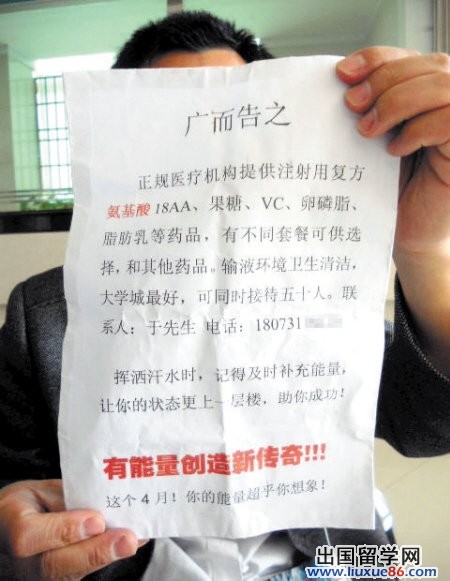 广而告之
正规医疗机构提供注射用复方
氨基酸18AA、果糖、VC、卵磷脂、
脂肪乳等药品，有不同套餐可供选
择，和其他药品。输液环境卫生清洁，
大学城最好，可同时接待五十人。联
系人：于先生 电话：180731
挥洒汗水时，记得及时补充能量，
让你的状态更上一层楼，助你成功！
有能量创造新传奇!!!
这个4月！你的能量超乎你想象！
出国留学网
www.liuxue86.com